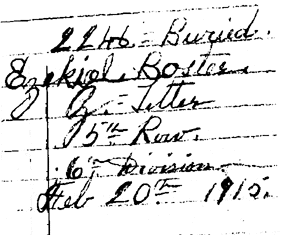 2246 - Buried.
Ezekiel. Boster.
G. - Letter
5th Row.
6th Division.
Feb 20th 1915.